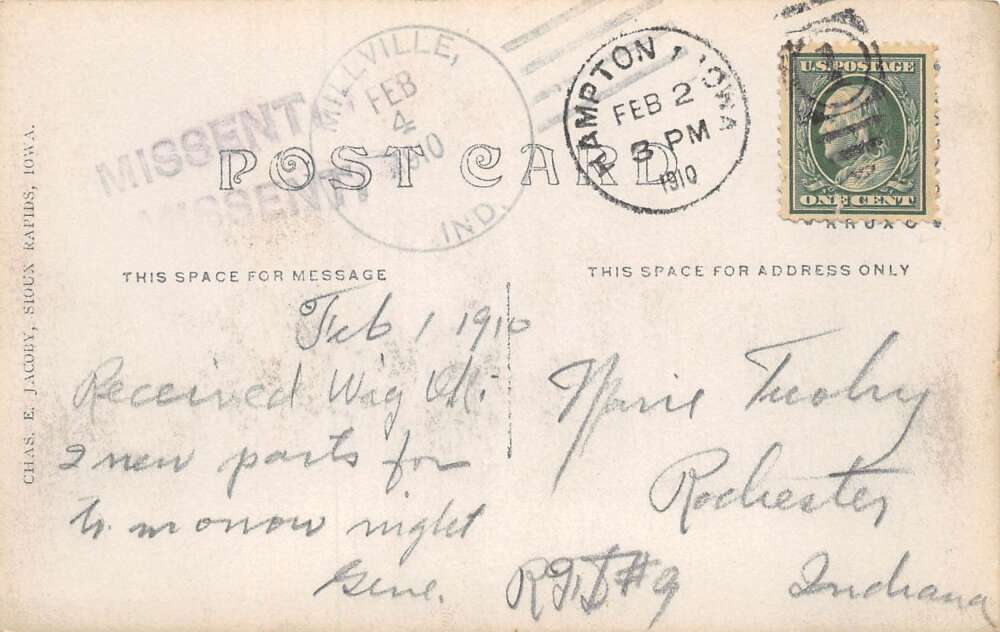 MISSENT
MISSENT
MILLVILLE,
FEB
4
1910
IND.
HAMPTON, IOWA
FEB 2
3 PM
1910
U.S. POSTAGE
ONE CENT
POST CARD
THIS SPACE FOR MESSAGE
THIS SPACE FOR ADDRESS ONLY
CHAS. E. JACOBY, SIOUX RAPIDS, IOWA.
Feb 1 1910
Received Wig
2 new parts for
to morrow night
Gene.
Marie
Rochester
RFD #9 Indiana